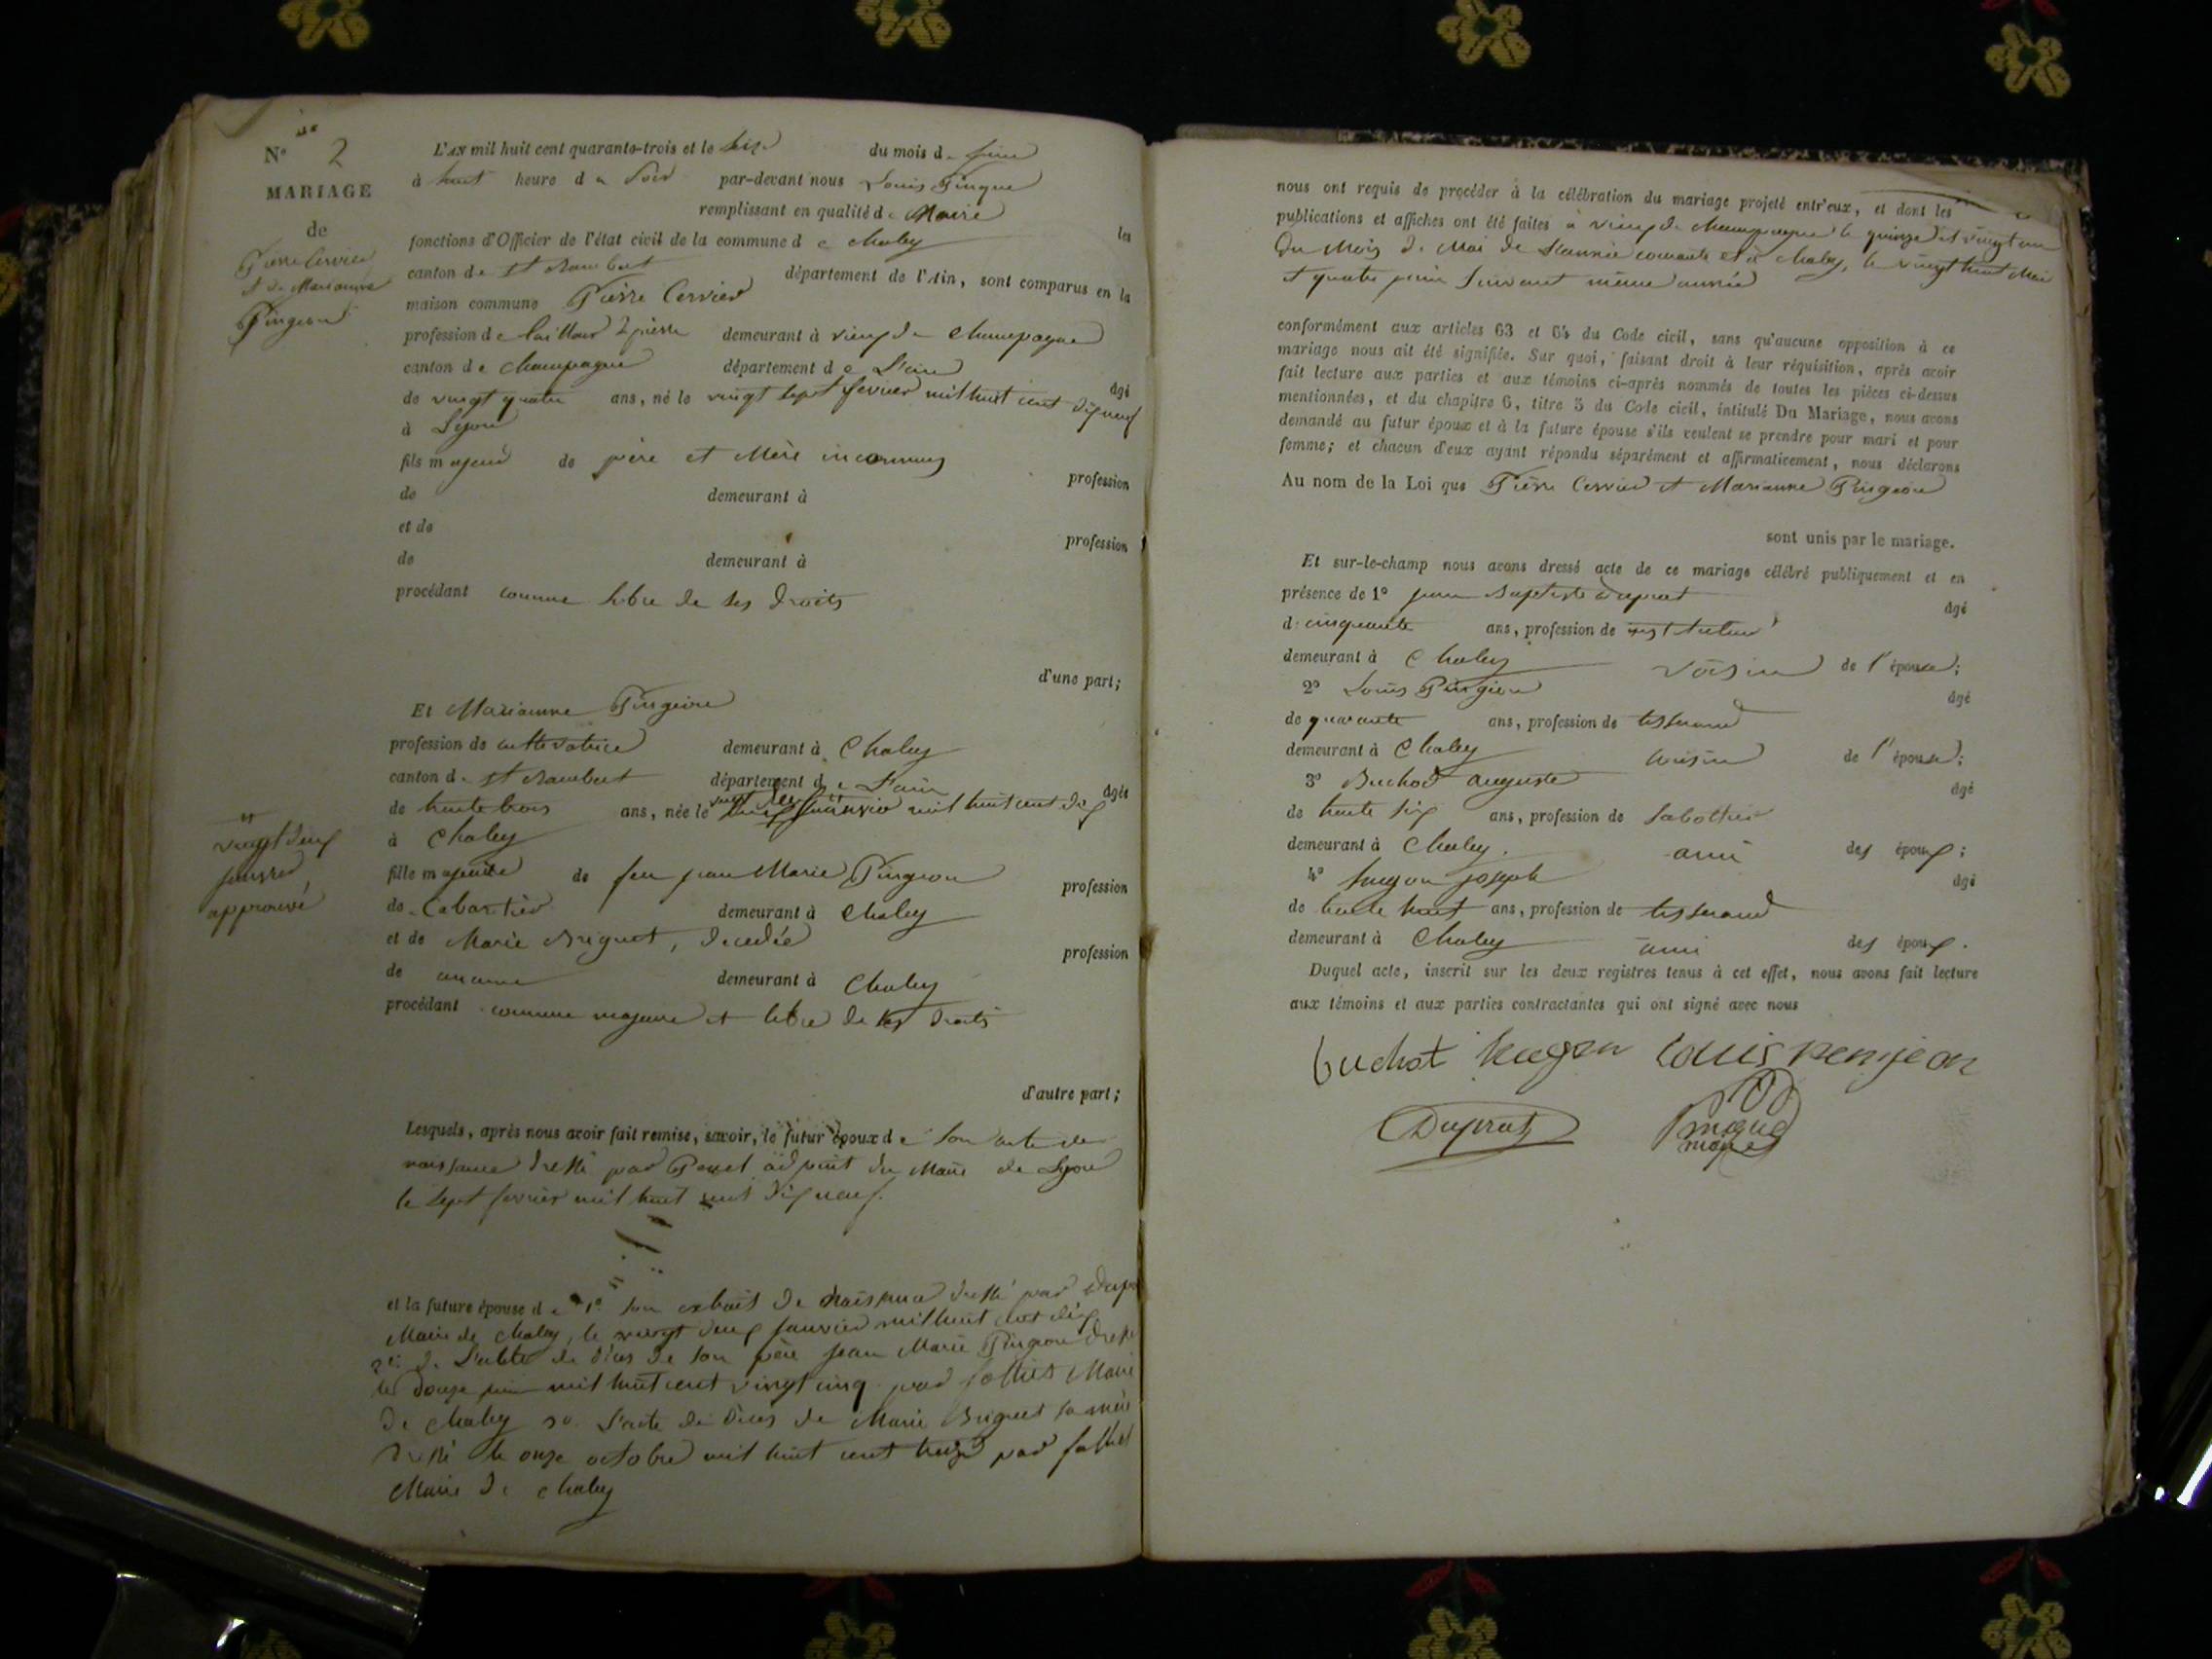 N° 2
MARIAGE
de
Pierre Cervier
et de Marianne
Pingeon
L'AN mil huit cent quarante-trois et le seize du mois de juin
à huit heure du Soir par-devant nous Louis Pingue
remplissant en qualité de Maire les
fonctions d'Officier de l'état civil de la commune de Chaley
canton de St Rambert département de l'Ain, sont comparus en la
maison commune Pierre Cervier
profession de tailleur de pierre demeurant à vieux de Champagne
canton de Champagne département de L'ain âgé
de vingt quatre ans, né le vingt sept fevrier mil huit cent dix neuf
à Lyon
fils majeur de père et Mère inconnus profession
de demeurant à
et de profession
de demeurant à
procédant comme libre de ses droits
d'une part;
Et Marianne Pingeon
profession de cultivatrice demeurant à Chaley
canton de St Rambert département de L'ain âgée
de trente trois ans, née le janvier mil huit cent dix
vingt deux
janvier
approuvé
à Chaley
fille majeure de feu jean Marie Pingeon profession
de Cabartier demeurant à Chaley
et de Marie Briguet, décédée profession
de aucune demeurant à Chaley
procédant comme majeure et libre de ses droits
d'autre part;
Lesquels, après nous avoir fait remise, savoir, le futur époux de son acte de
naissance dressé par adjoint du Maire de Lyon
le sept fevrier mil huit cent dix neuf.
et la future épouse de 1° son extrait de naissance dressé par
Maire de Chaley, le vingt deux janvier mil huit cent dix
2° de L'acte de décès de son père jean Marie Pingeon dressé
le douze juin mil huit cent vingt cinq par Maire
de Chaley 3° L'acte de décès de Marie Briguet sa mère
dressé le onze octobre mil huit cent treize par
Maire de Chaley
nous ont requis de procéder à la célébration du mariage projeté entr'eux, et dont les
publications et affiches ont été faites à vieux de Champagne le quinze et vingt un
Du Mois de Mai de L'année courante et à Chaley, le vingt huit Mai
et quatre juin suivant même année
conformément aux articles 63 et 64 du Code civil, sans qu'aucune opposition à ce
mariage nous ait été signifiée. Sur quoi, faisant droit à leur réquisition, après avoir
fait lecture aux parties et aux témoins ci-après nommés de toutes les pièces ci-dessus
mentionnées, et du chapitre 6, titre 5 du Code civil, intitulé Du Mariage, nous avons
demandé au futur époux et à la future épouse s'ils veulent se prendre pour mari et pour
femme; et chacun d'eux ayant répondu séparément et affirmativement, nous déclarons
Au nom de la Loi que Pierre Cervier et Marianne Pingeon
sont unis par le mariage.
Et sur-le-champ nous avons dressé acte de ce mariage célébré publiquement et en
présence de 1° jean Baptiste Duprat âgé
de cinquante ans, profession de instituteur
demeurant à Chaley voisin de l'épouse;
2° Louis Pingeon âgé
de quarante ans, profession de tisserand
demeurant à Chaley cousin de l'épouse;
3° Buchod auguste âgé
de trente six ans, profession de sabottier
demeurant à Chaley. ami des époux;
4° hugon joseph âgé
de trente huit ans, profession de tisserand
demeurant à Chaley ami des époux.
Duquel acte, inscrit sur les deux registres tenus à cet effet, nous avons fait lecture
aux témoins et aux parties contractantes qui ont signé avec nous
buchot hugon Louis penjeon
Duprat Pingue
maire